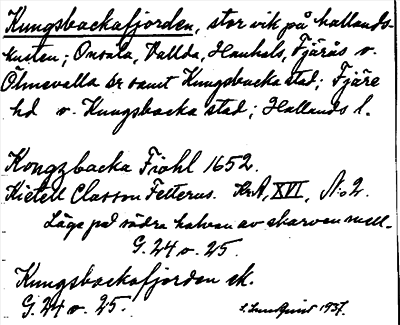 Kungsbackafjorden, stor vik på hallands-
kusten; Onsala, Vallda, Hanhals, Fjärås o.
Ölmevalla sr samt Kungsbacka stad; Fjäre
hd o. Kungsbacka stad; Hallands l.
Kongzbacka Fiöhl 1652.
Kietell Classon Felterus. KrA, XVI, N:o 2.
Läge på södra halvan av skarven mell.
G. 24 o. 25.
Kungsbackafjorden ek.
G. 24 o. 25.
S. Lundquist 1937.